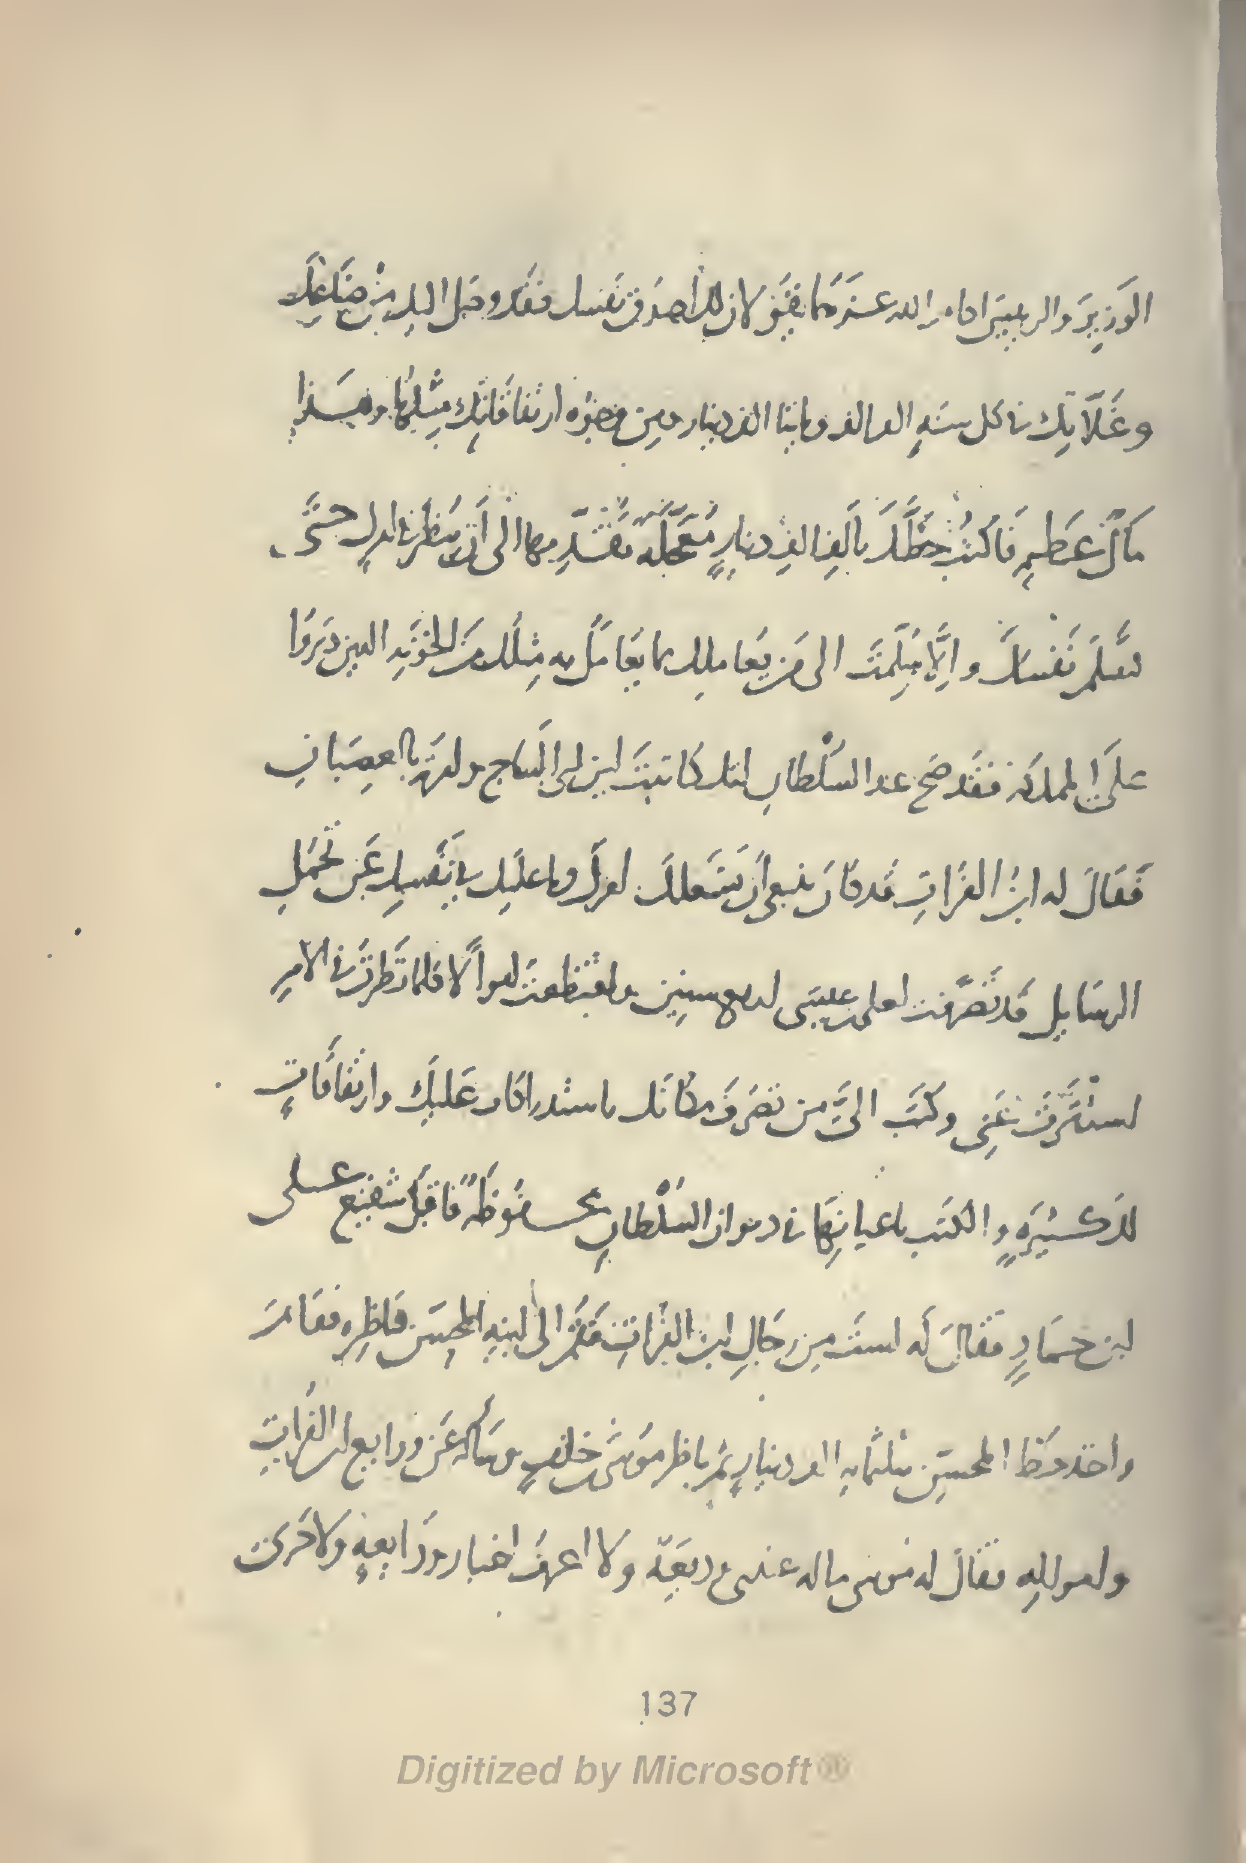 الوَزِيرَ والرئيسَ اطا الله عمرهما يقفَ لانى لك اصدق نفسك فقد وصل اليك مِن ضِيَاعِكَ
وغَلَّاتِكَ فى كل سنةٍ الف الف ومايتا الف دينار ومِن وجوُه ارتفاقاتِك مِثلُها وهـذا
مَالٌ عَظيم فَاكتُبْ خطَّكَ بالفِ الفِ دينارٍ مُعَجَّلةً تُقَدِّمها الى أن يَنظر فى امرك حـتَّى
تُسَلِّمَ نَفْسكَ وإلَّا سُلِّمتَ الى مَن يُعاملك بما يُعَامَلُ به مِثلُك مِنَ الخَوَنةِ الذين دَبَّروا
علَى المملكة فقَد صَح عند السُلْطانِ انك كاتبتَ ابن ابى السَّاج وامرته بالعِصيَانِ
فَقَالَ له ابنُ الفُرَاتِ قَد كانَ ينبغى أن يَشغلك وما عليك فى نَفسِك عَن تَحَمُّلِ
الرسَايلِ قد تصَرَّفت لعلى بن عيسَى اربع سِنِين واقتطعتَ اموالًا فلما نظرتُ فى الامرِ
استَترتَ عَنّى وكتَبَ الىَّ من تصَرفَ مكانَك باستدراكات عَليكَ وارتفاقاتٍ
لكَ كـثيرةٍ والكتب باعيانِهَا فى ديوان السُلْطانِ محـفوظةً فاقبَلَ شفيع علـى
ابن حـمادٍ فقالَ لَه لستَ مِن رجَالِ ابن الفُراتِ فقُم الى ابنِهِ المحسِّن فَنَاظِره فقَامَ
واخذ خَطَّ المحسِّن بثلثمايه الف دينارٍ ثم ناظر موسَى خلفٍ وسَأله عَن ودايع ابن الفُراتِ
وامواله فقالَ له مُوسى ماله عندى وديعَة ولا اعرفُ اخبار ودَايعهِ ولا جَرَت
137
Digitized by Microsoft®